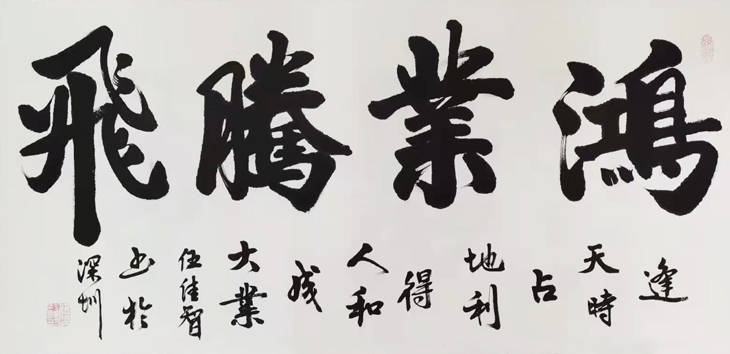 鴻業騰飛
逢天時占地利得人和成大業伍佳智書於深圳